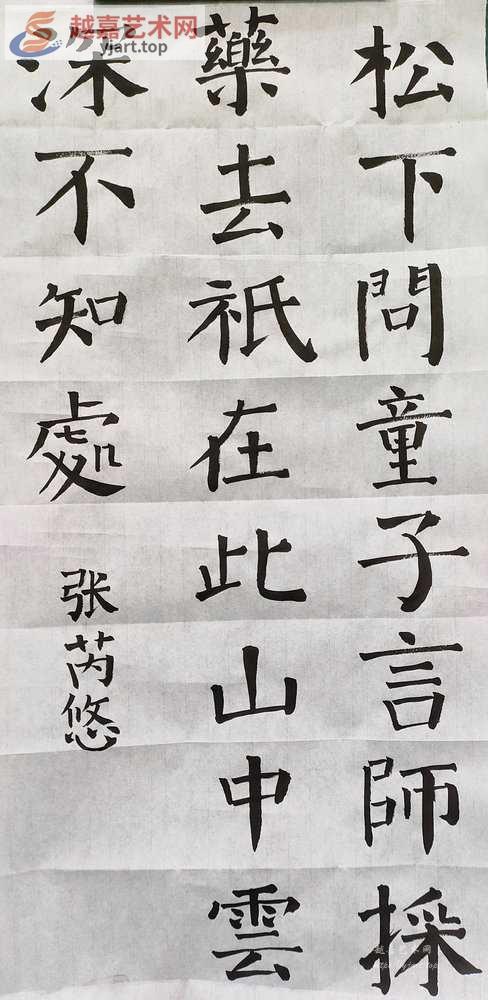 松下問童子言師採
藥去祇在此山中雲
深不知處
张芮悠
越嘉艺术网
yjart.top
越嘉艺术网